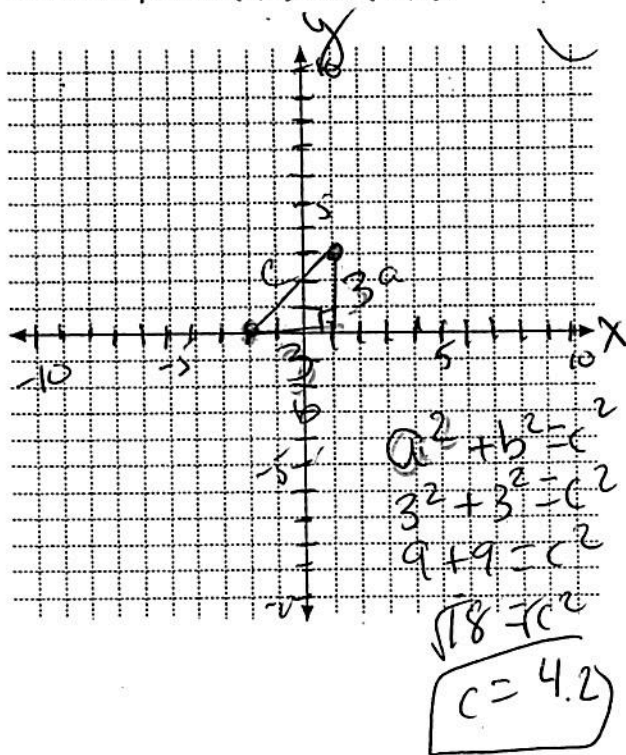 y
10
5
c
3 a
x
-10
-5
5
10
3
b
-5
a² + b² = c²
3² + 3² = c²
9 + 9 = c²
√18 = √c²
c = 4.2